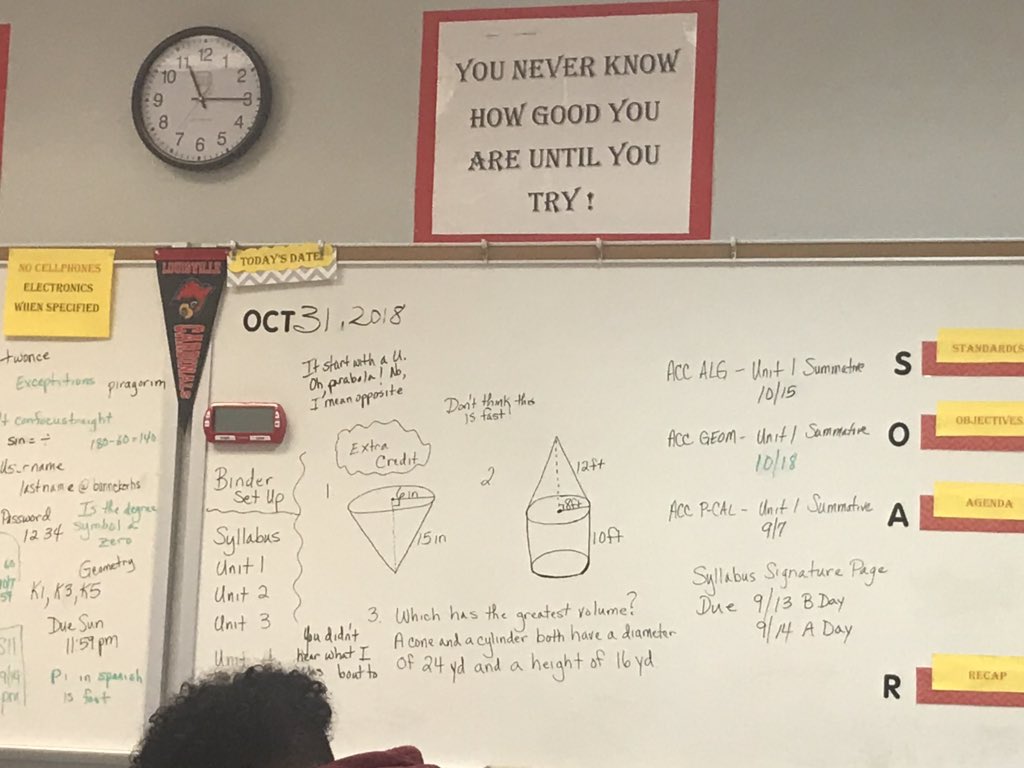 12
11
1
10
2
9
3
8
4
7
5
6
YOU NEVER KNOW
HOW GOOD YOU
ARE UNTIL YOU
TRY!
NO CELLPHONES
ELECTRONICS
WHEN SPECIFIED
LOUISVILLE
CARDINALS
TODAY'S DATE
OCT 31, 2018
twonce
Exceptitions piragorim
confocustraight
sin = ÷ 180-60=140
lastname @ bannekerhs
Password
1234
Is the degree
symbol a
zero
Geometry
K1, K3, K5
Due Sun
11:59pm
Pi in spanish
is fast
It start with a U.
Oh, parabola! No,
I mean opposite
Don't think this
is fast!
Extra
Credit
Binder
Set Up
Syllabus
Unit 1
Unit 2
Unit 3
You didn't
hear what I
bout to
1
6 in
15 in
2
12ft
8ft
10ft
3. Which has the greatest volume?
A cone and a cylinder both have a diameter
of 24 yd and a height of 16 yd
ACC ALG - Unit 1 Summative
10/15
ACC GEOM - Unit 1 Summative
10/18
ACC P-CAL - Unit 1 Summative
9/7
Syllabus Signature Page
Due 9/13 B Day
9/14 A Day
S
STANDARD(S
O
OBJECTIVES
A
AGENDA
R
RECAP